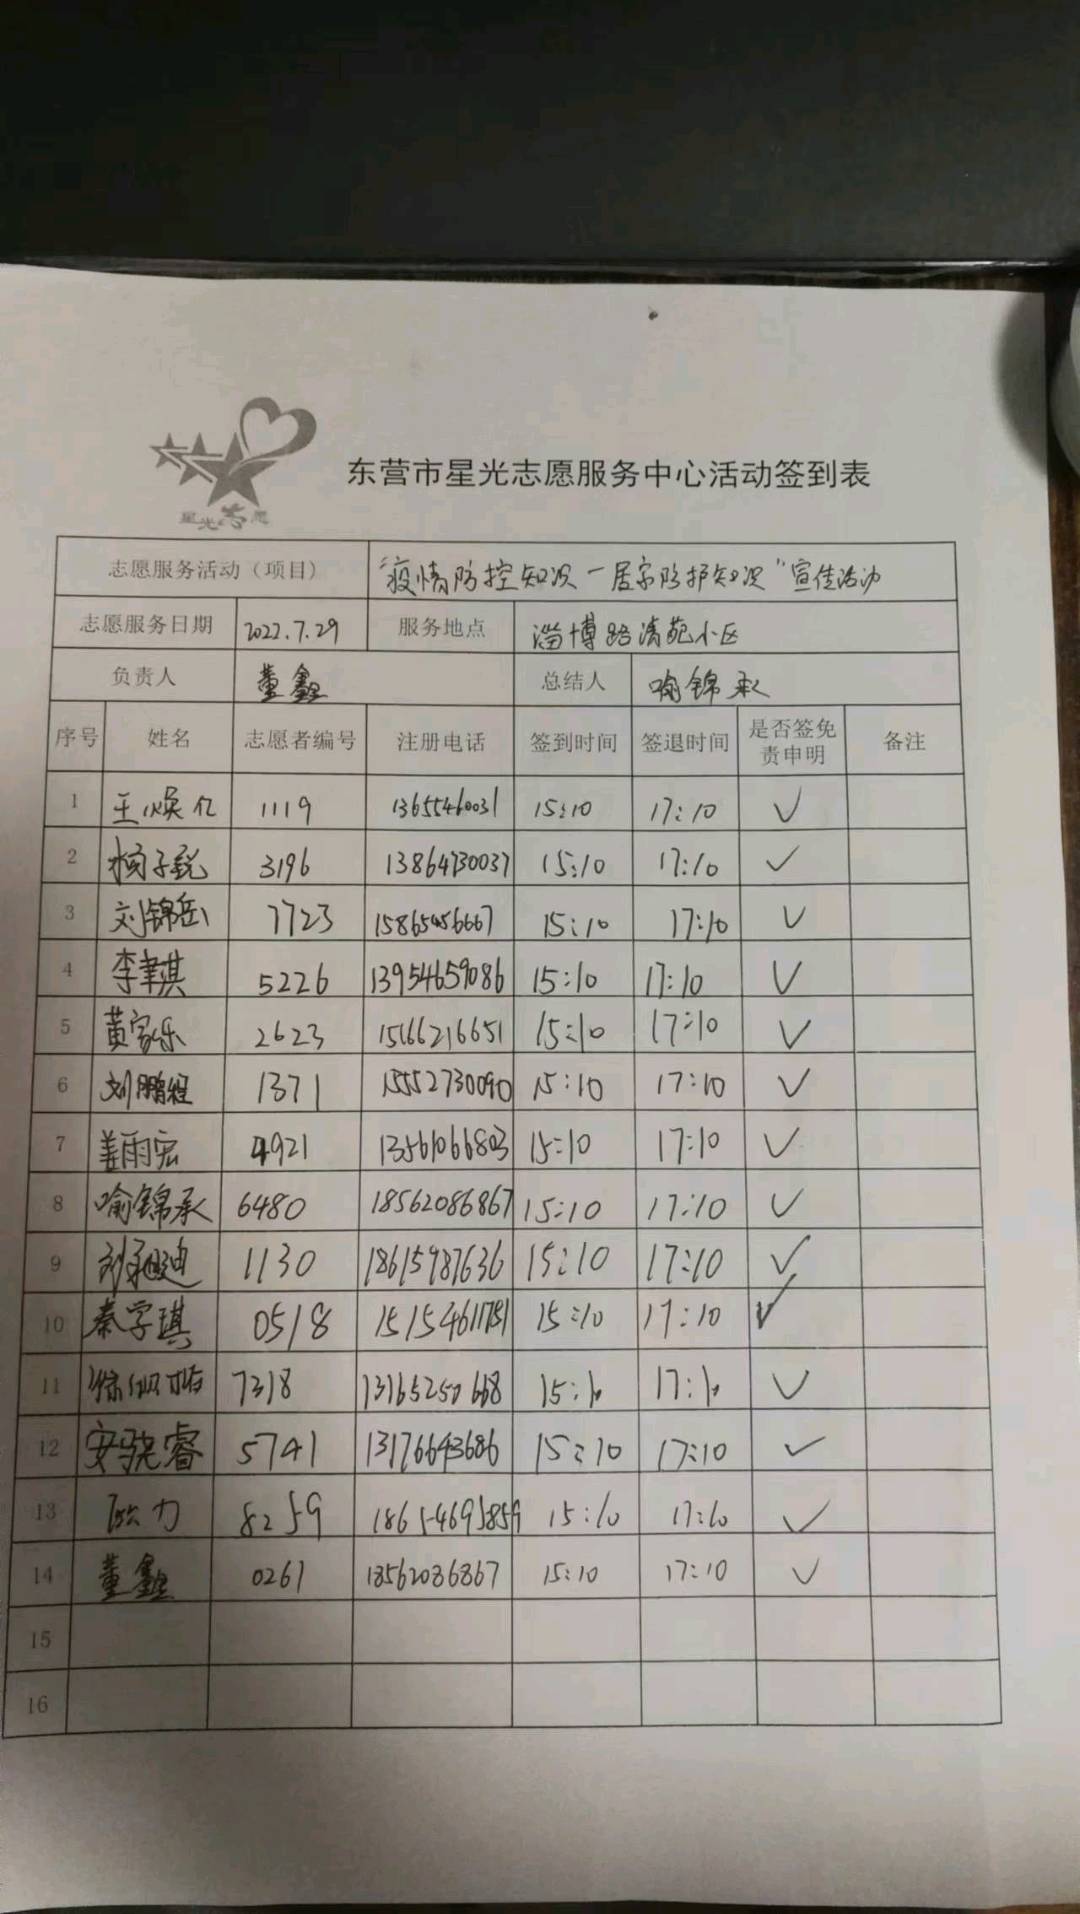 星光志愿
东营市星光志愿服务中心活动签到表
志愿服务活动（项目） "疫情防控知识一居家防护知识"宣传活动
志愿服务日期 2022.7.29 服务地点 淄博路清苑小区
负责人 董鑫 总结人 喻锦承
序号 姓名 志愿者编号 注册电话 签到时间 签退时间 是否签免责申明 备注
1 王焕亿 1119 13655460031 15:10 17:10 ✓
2 杨子锐 3196 13864730037 15:10 17:10 ✓
3 刘锦岳 7723 15865456667 15:10 17:10 ✓
4 李聿祺 5226 13954659086 15:10 17:10 ✓
5 黄家乐 2623 15166216651 15:10 17:10 ✓
6 刘鹏程 1371 15552730090 15:10 17:10 ✓
7 姜雨宏 4921 13561066803 15:10 17:10 ✓
8 喻锦承 6480 18562086867 15:10 17:10 ✓
9 1130 18615987636 15:10 17:10 ✓
10 秦字琪 0518 15:10 17:10 ✓
11 7318 15:10 17:10 ✓
12 安骁睿 5741 13176643686 15:10 17:10 ✓
13 力 8259 18654695859 15:10 17:10 ✓
14 董鑫 0261 18562086867 15:10 17:10 ✓
15
16